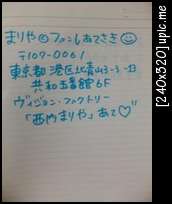 まりや のファンレターあてさき
〒107-0061
東京都港区北青山3-3-
共和五番館6F
ヴィジョン・ファクトリー
「西内まりや」あて♡
[240x320] upic.me